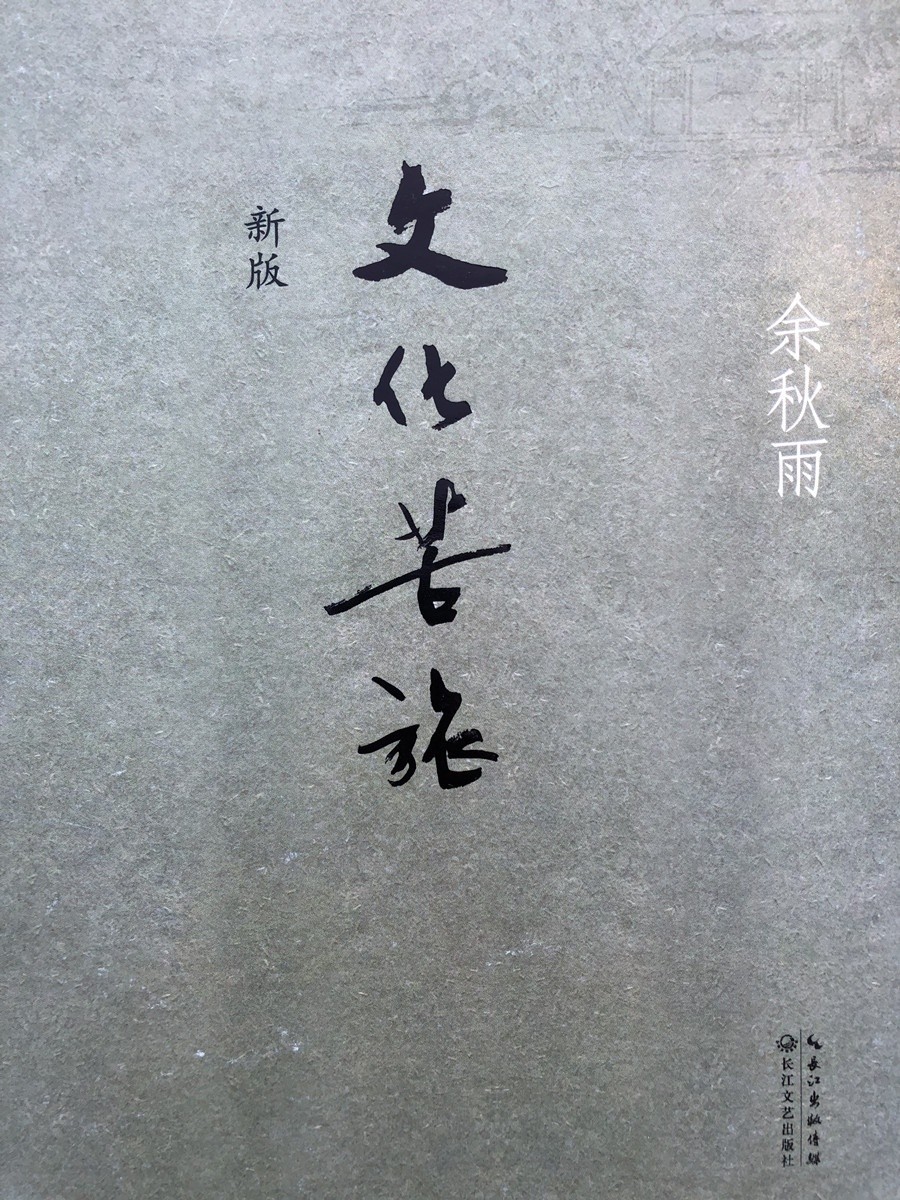 余秋雨
文化苦旅
新版
長江出版传媒
长江文艺出版社